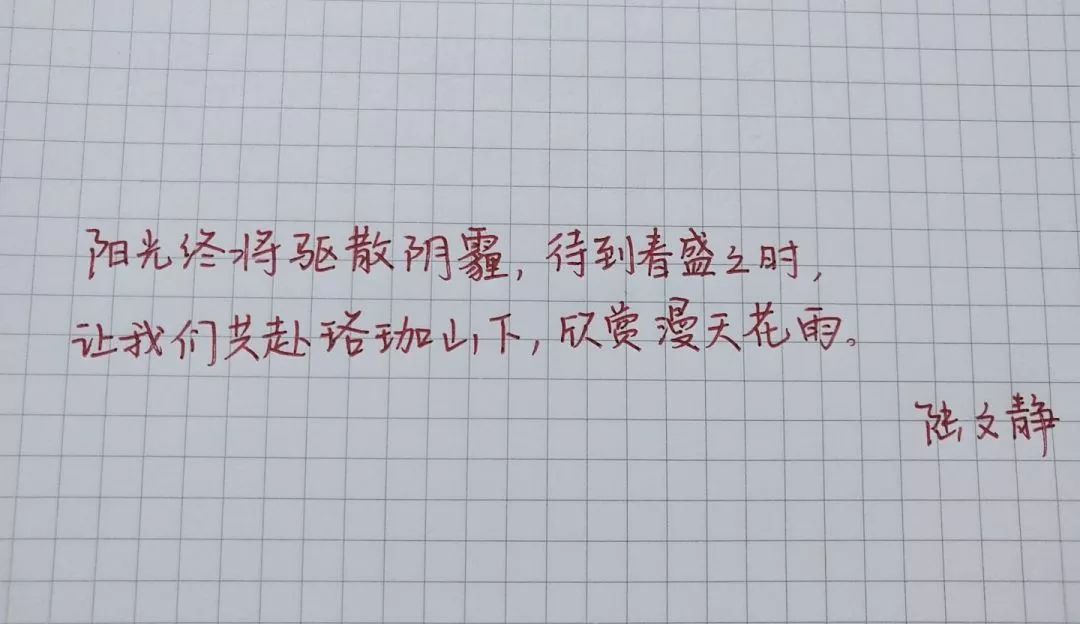 阳光终将驱散阴霾，待到春盛之时，
让我们共赴珞珈山下，欣赏漫天花雨。
陆文静